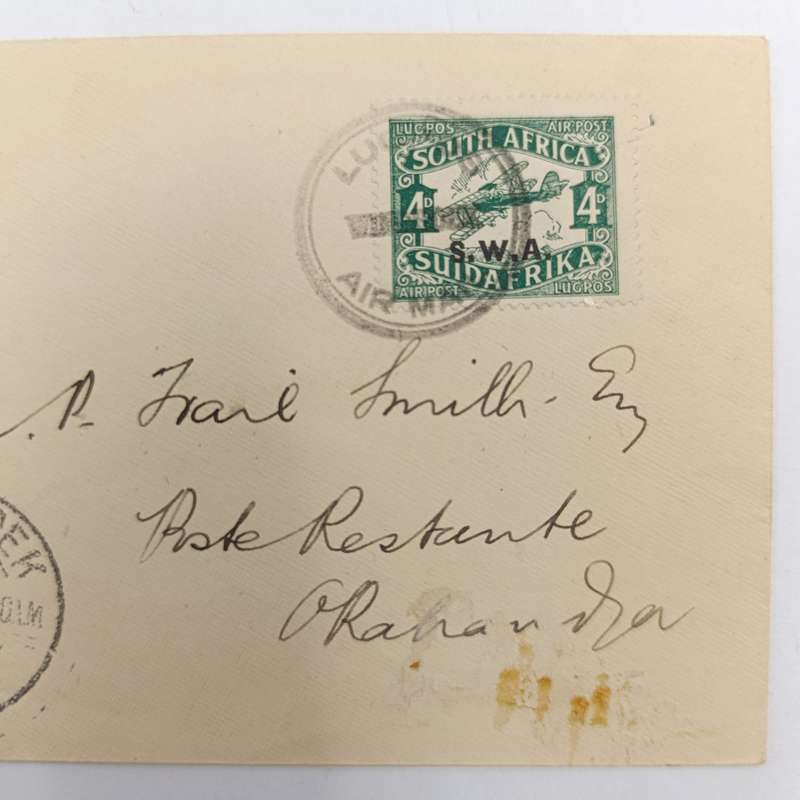 LUGPOS AIR POST
SOUTH AFRICA
4D 4D
S.W.A.
SUIDAFRIKA
AIR POST LUGPOS
AIR MAIL
P. Trail Smith. Esq
Poste Restante
Okahandja
DEK